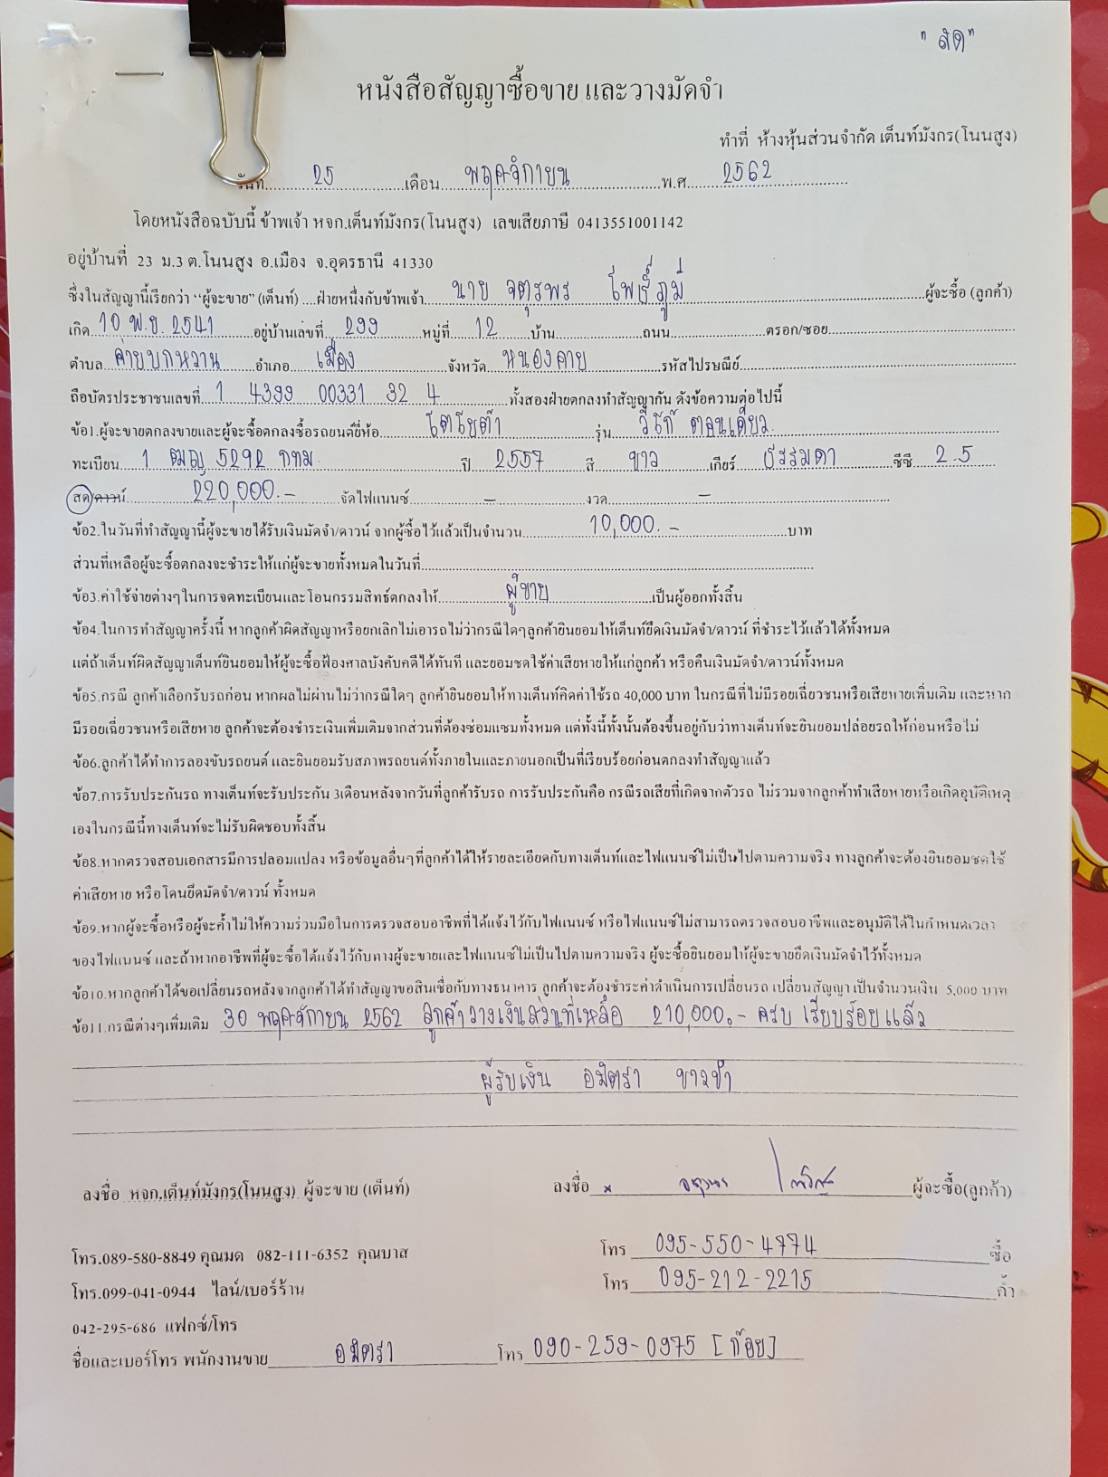 " สด "
หนังสือสัญญาซื้อขาย และวางมัดจำ
ทำที่ ห้างหุ้นส่วนจำกัด เต็นท์มังกร(โนนสูง)
วันที่ 25 เดือน พฤศจิกายน พ.ศ. 2562
โดยหนังสือฉบับนี้ ข้าพเจ้า หจก.เต็นท์มังกร(โนนสูง) เลขเสียภาษี 0413551001142
อยู่บ้านที่ 23 ม.3 ต.โนนสูง อ.เมือง จ.อุดรธานี 41330
ซึ่งในสัญญานี้เรียกว่า "ผู้จะขาย" (เต็นท์) ....ฝ่ายหนึ่งกับข้าพเจ้า นาย จตุรพร โพธิ์ภูมี ผู้จะซื้อ (ลูกค้า)
เกิด 10 พ.ย. 2541 อยู่บ้านเลขที่ 299 หมู่ที่ 12 บ้าน ถนน ตรอก/ซอย
ตำบล ค่ายบกหวาน อำเภอ เมือง จังหวัด หนองคาย รหัสไปรษณีย์
ถือบัตรประชาชนเลขที่ 1 4399 00331 32 4 ทั้งสองฝ่ายตกลงทำสัญญากัน ดังข้อความต่อไปนี้
ข้อ1.ผู้จะขายตกลงขายและผู้จะซื้อตกลงซื้อรถยนต์ยี่ห้อ โตโยต้า รุ่น วีโก้ ตอนเดียว
ทะเบียน 1 ฒญ 5292 กทม ปี 2557 สี ขาว เกียร์ ธรรมดา ซีซี 2.5
สด/ดาวน์ 220,000.- จัดไฟแนนซ์ - งวด -
ข้อ2.ในวันที่ทำสัญญานี้ผู้จะขายได้รับเงินมัดจำ/ดาวน์ จากผู้ซื้อไว้แล้วเป็นจำนวน 10,000.- บาท
ส่วนที่เหลือผู้จะซื้อตกลงจะชำระให้แก่ผู้จะขายทั้งหมดในวันที่
ข้อ3.ค่าใช้จ่ายต่างๆในการจดทะเบียนและโอนกรรมสิทธิ์ตกลงให้ ผู้ขาย เป็นผู้ออกทั้งสิ้น
ข้อ4.ในการทำสัญญาครั้งนี้ หากลูกค้าผิดสัญญาหรือยกเลิกไม่เอารถไม่ว่ากรณีใดๆลูกค้ายินยอมให้เต็นท์ยึดเงินมัดจำ/ดาวน์ ที่ชำระไว้แล้วได้ทั้งหมด
แต่ถ้าเต็นท์ผิดสัญญาเต็นท์ยินยอมให้ผู้จะซื้อฟ้องศาลบังคับคดีได้ทันที และยอมชดใช้ค่าเสียหายให้แก่ลูกค้า หรือคืนเงินมัดจำ/ดาวน์ทั้งหมด
ข้อ5.กรณี ลูกค้าเลือกรับรถก่อน หากผลไม่ผ่านไม่ว่ากรณีใดๆ ลูกค้ายินยอมให้ทางเต็นท์คิดค่าใช้รถ 40,000 บาท ในกรณีที่ไม่มีรอยเฉี่ยวชนหรือเสียหายเพิ่มเติม และหาก
มีรอยเฉี่ยวชนหรือเสียหาย ลูกค้าจะต้องชำระเงินเพิ่มเติมจากส่วนที่ต้องซ่อมแซมทั้งหมด แต่ทั้งนี้ทั้งนั้นต้องขึ้นอยู่กับว่าทางเต็นท์จะยินยอมปล่อยรถให้ก่อนหรือไม่
ข้อ6.ลูกค้าได้ทำการลองขับรถยนต์ และยินยอมรับสภาพรถยนต์ทั้งภายในและภายนอกเป็นที่เรียบร้อยก่อนตกลงทำสัญญาแล้ว
ข้อ7.การรับประกันรถ ทางเต็นท์จะรับประกัน 3เดือนหลังจากวันที่ลูกค้ารับรถ การรับประกันคือ กรณีรถเสียที่เกิดจากตัวรถ ไม่รวมจากลูกค้าทำเสียหายหรือเกิดอุบัติเหตุ
เองในกรณีนี้ทางเต็นท์จะไม่รับผิดชอบทั้งสิ้น
ข้อ8.หากตรวจสอบเอกสารมีการปลอมแปลง หรือข้อมูลอื่นๆที่ลูกค้าได้ให้รายละเอียดกับทางเต็นท์และไฟแนนซ์ไม่เป็นไปตามความจริง ทางลูกค้าจะต้องยินยอมชดใช้
ค่าเสียหาย หรือโดนยึดมัดจำ/ดาวน์ ทั้งหมด
ข้อ9.หากผู้จะซื้อหรือผู้จะค้ำไม่ให้ความร่วมมือในการตรวจสอบอาชีพที่ได้แจ้งไว้กับไฟแนนซ์ หรือไฟแนนซ์ไม่สามารถตรวจสอบอาชีพและอนุมัติได้ในกำหนดเวลา
ของไฟแนนซ์ และถ้าหากอาชีพที่ผู้จะซื้อได้แจ้งไว้กับทางผู้จะขายและไฟแนนซ์ไม่เป็นไปตามความจริง ผู้จะซื้อยินยอมให้ผู้จะขายยึดเงินมัดจำไว้ทั้งหมด
ข้อ10.หากลูกค้าได้ขอเปลี่ยนรถหลังจากลูกค้าได้ทำสัญญาขอสินเชื่อกับทางธนาคาร ลูกค้าจะต้องชำระค่าดำเนินการเปลี่ยนรถ เปลี่ยนสัญญา เป็นจำนวนเงิน 5,000 บาท
ข้อ11.กรณีต่างๆเพิ่มเติม 30 พฤศจิกายน 2562 ลูกค้าวางเงินส่วนที่เหลือ 210,000.- ครบ เรียบร้อยแล้ว
ผู้รับเงิน อมิตรา ขาวขำ
ลงชื่อ หจก.เต็นท์มังกร(โนนสูง) ผู้จะขาย (เต็นท์) ลงชื่อ x จตุรพร ผู้จะซื้อ(ลูกค้า)
โทร.089-580-8849 คุณมด 082-111-6352 คุณบาส โทร 095-550-4774 ซื้อ
โทร.099-041-0944 ไลน์/เบอร์ร้าน โทร 095-212-2215 ค้ำ
042-295-686 แฟกซ์/โทร
ชื่อและเบอร์โทร พนักงานขาย อมิตรา โทร 090-259-0975 [ก้อย]